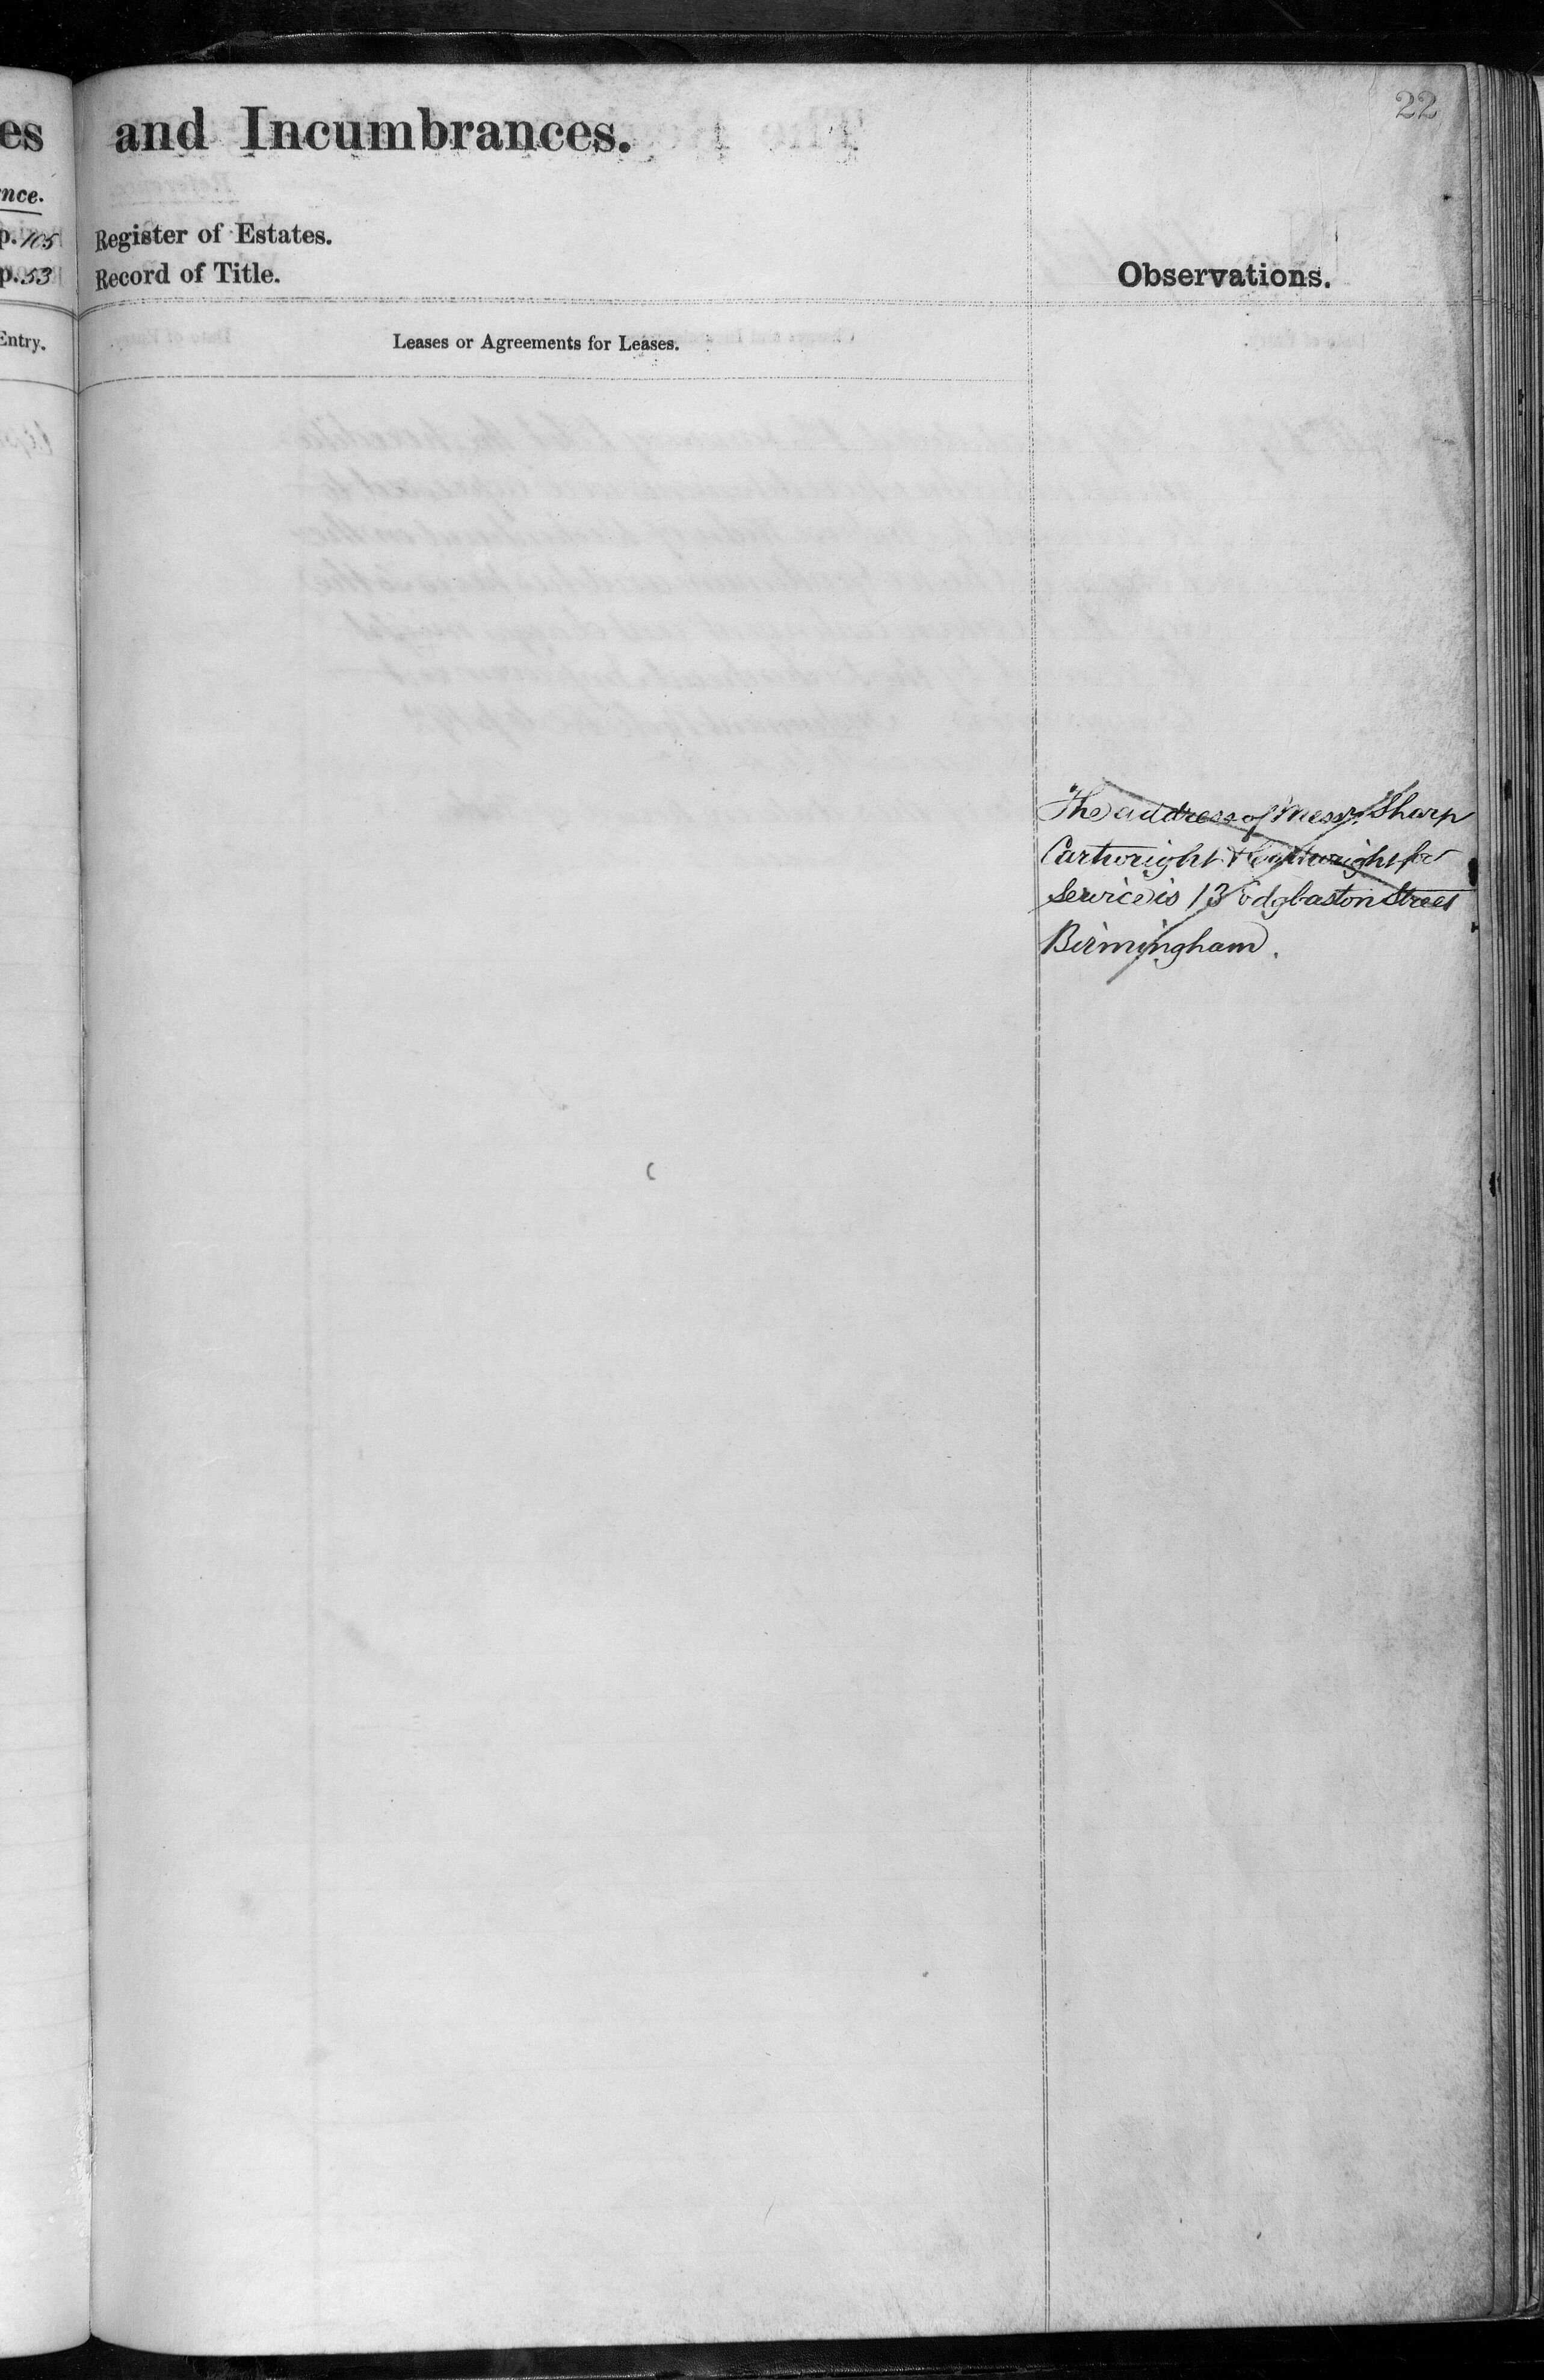 22
es and Incumbrances.
nce.
p. 105 Register of Estates.
p. 53 Record of Title.
Observations.
Entry.
Leases or Agreements for Leases.
The address of Messrs. Sharp
Cartwright & Cartwright for
service is 13 Edgbaston Street
Birmingham.